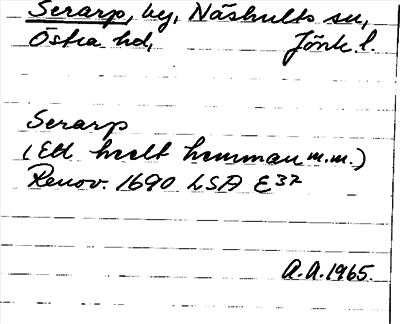 Serarp, by, Näshults sn,
Östra hd, Jönk. l.
Serarp
(Ett heelt hemman m.m.)
Renov. 1690 LSA E37
A.A. 1965.